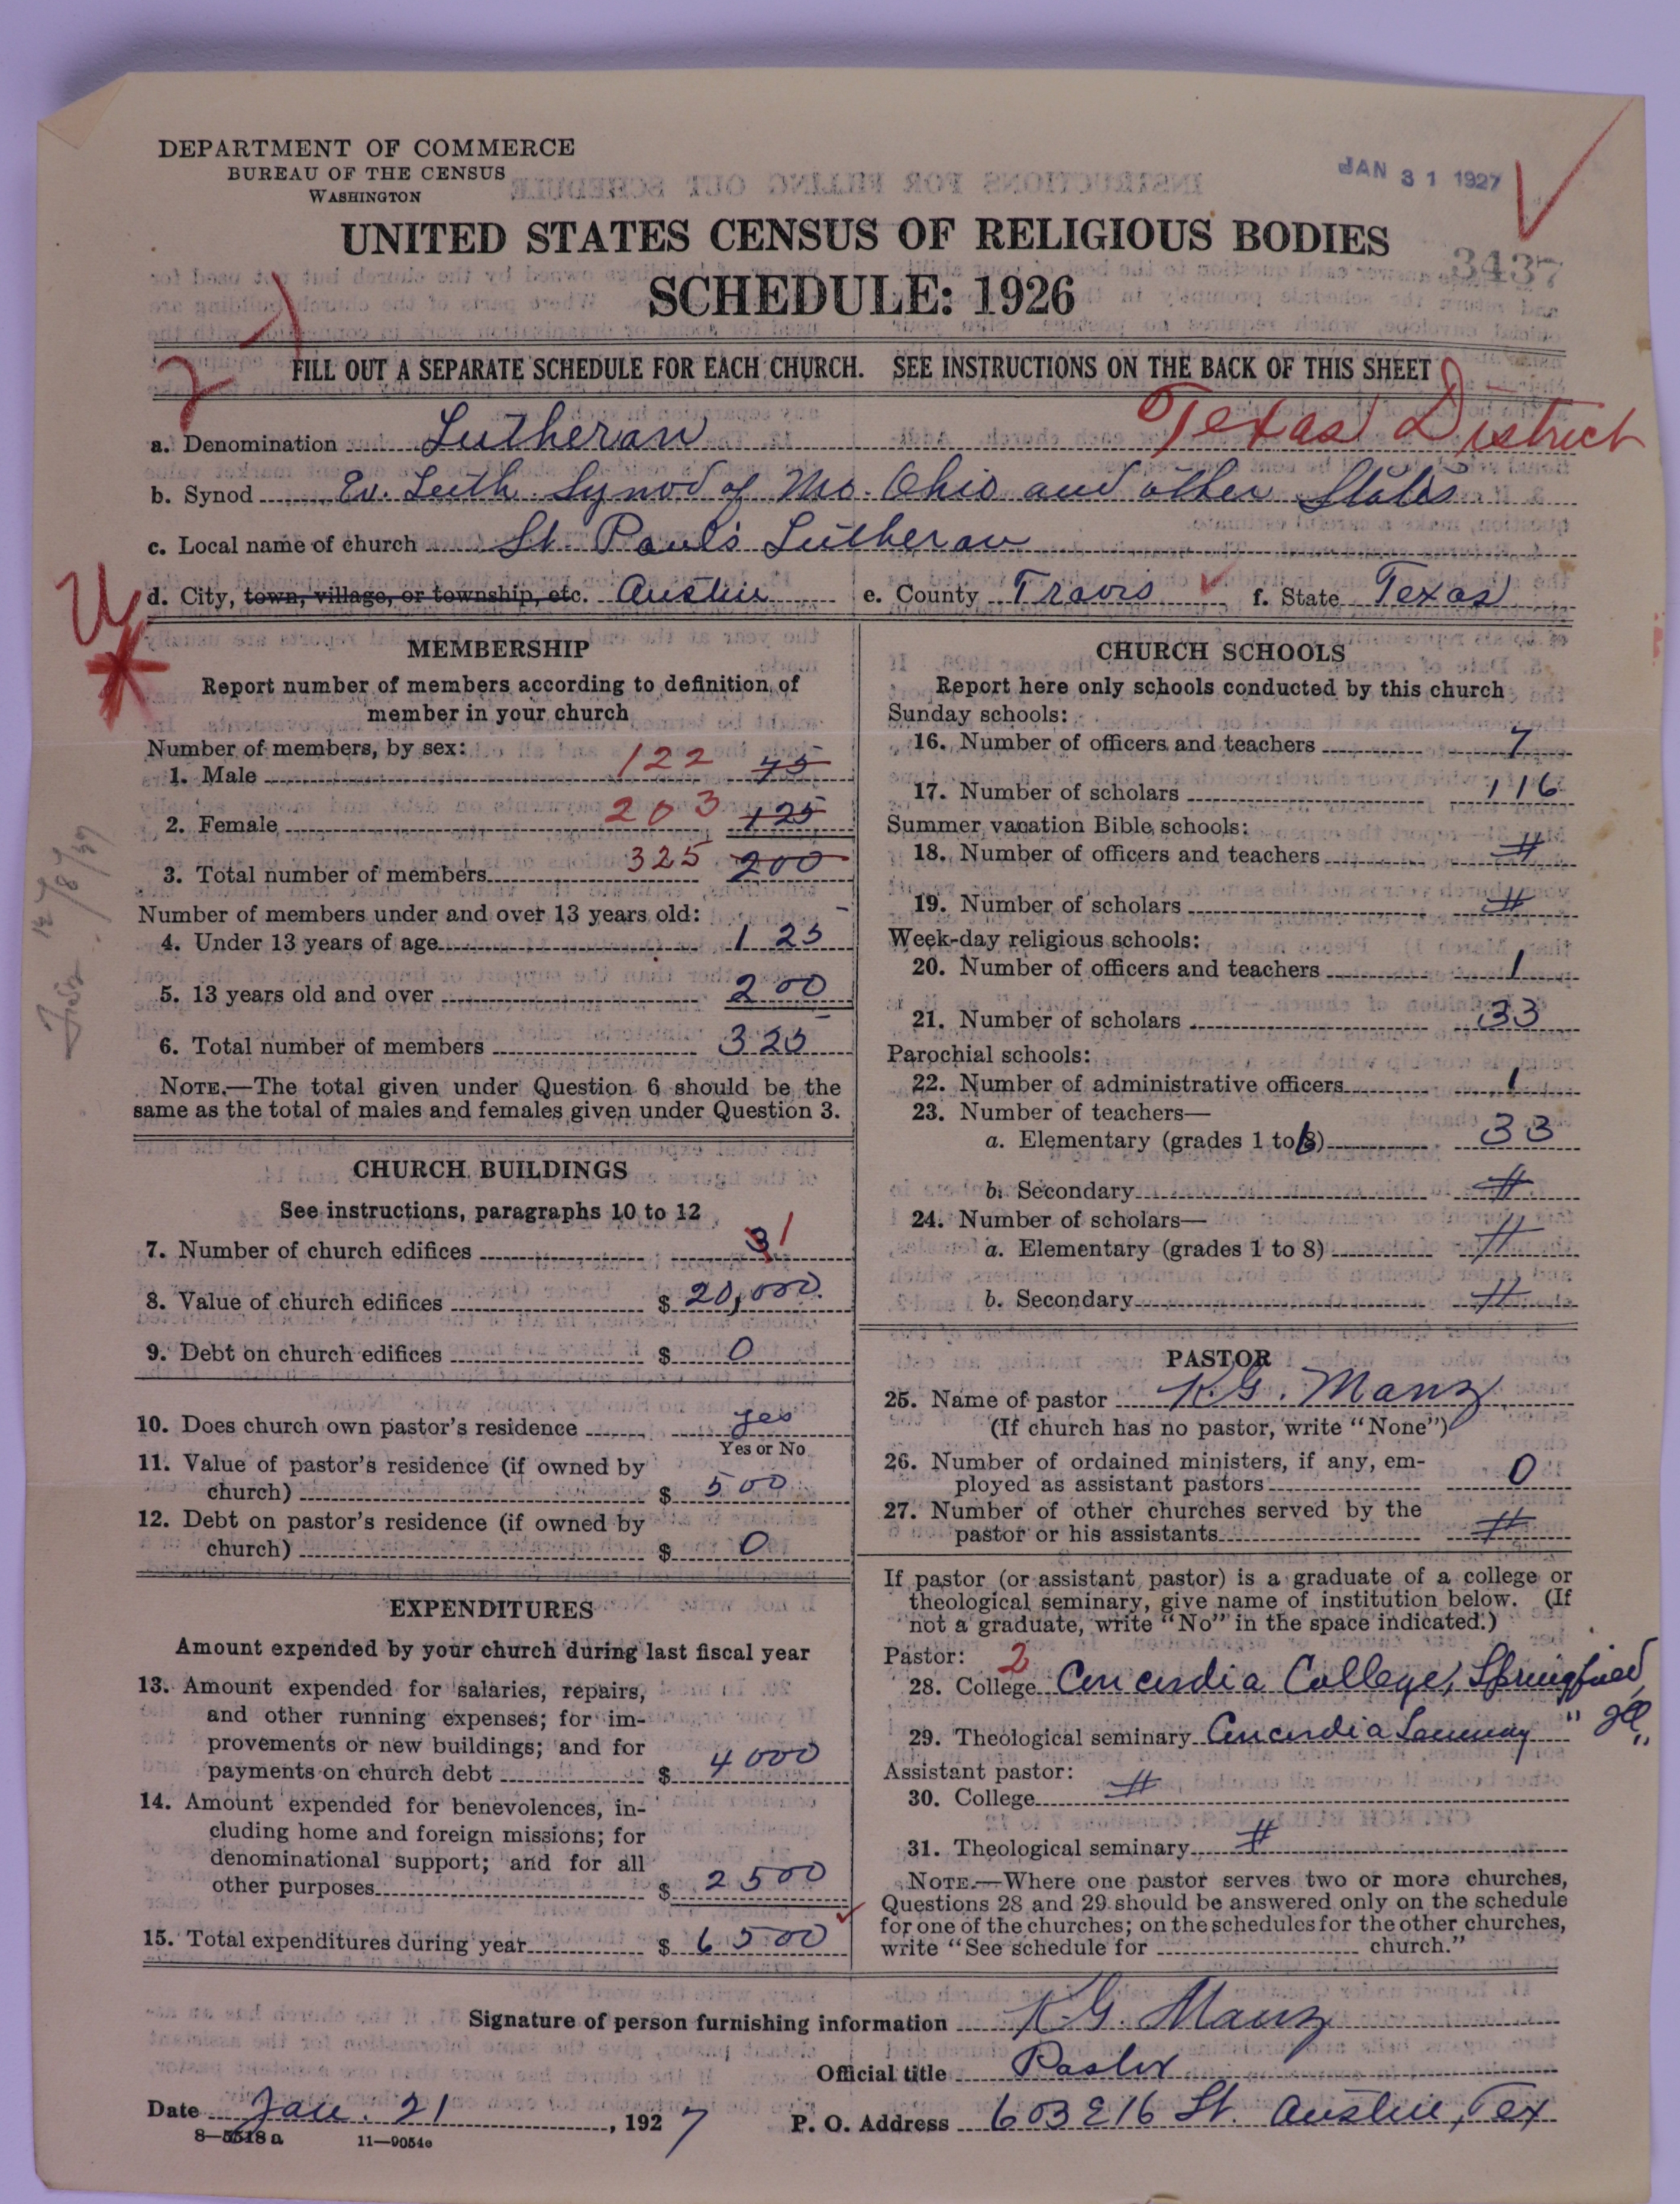 DEPARTMENT OF COMMERCE
BUREAU OF THE CENSUS
WASHINGTON
JAN 31 1927
UNITED STATES CENSUS OF RELIGIOUS BODIES
3437
SCHEDULE: 1926
FILL OUT A SEPARATE SCHEDULE FOR EACH CHURCH. SEE INSTRUCTIONS ON THE BACK OF THIS SHEET
Texas District
a. Denomination Lutheran
b. Synod Ev. Luth Synod of Mo. Ohio and other States
c. Local name of church St. Paul's Lutheran
d. City, town, village, or township, etc. Austin e. County Travis f. State Texas
MEMBERSHIP
Report number of members according to definition of
member in your church
Number of members, by sex:
1. Male 122 75
2. Female 203 125
3. Total number of members 325 200
Number of members under and over 13 years old:
4. Under 13 years of age 125
5. 13 years old and over 200
6. Total number of members 325
NOTE.—The total given under Question 6 should be the
same as the total of males and females given under Question 3.
CHURCH BUILDINGS
See instructions, paragraphs 10 to 12
7. Number of church edifices 3 1
8. Value of church edifices $ 20,000.
9. Debt on church edifices $ 0
10. Does church own pastor's residence yes
Yes or No
11. Value of pastor's residence (if owned by
church) $ 500
12. Debt on pastor's residence (if owned by
church) $ 0
EXPENDITURES
Amount expended by your church during last fiscal year
13. Amount expended for salaries, repairs,
and other running expenses; for im-
provements or new buildings; and for
payments on church debt $ 4000
14. Amount expended for benevolences, in-
cluding home and foreign missions; for
denominational support; and for all
other purposes $ 2500
15. Total expenditures during year $ 6500
CHURCH SCHOOLS
Report here only schools conducted by this church
Sunday schools:
16. Number of officers and teachers 7
17. Number of scholars 116
Summer vacation Bible schools:
18. Number of officers and teachers
19. Number of scholars
Week-day religious schools:
20. Number of officers and teachers 1
21. Number of scholars 33
Parochial schools:
22. Number of administrative officers 1
23. Number of teachers—
a. Elementary (grades 1 to 8) 33
b. Secondary
24. Number of scholars—
a. Elementary (grades 1 to 8)
b. Secondary
PASTOR
25. Name of pastor K.G. Manz
(If church has no pastor, write "None")
26. Number of ordained ministers, if any, em-
ployed as assistant pastors 0
27. Number of other churches served by the
pastor or his assistants
If pastor (or assistant pastor) is a graduate of a college or
theological seminary, give name of institution below. (If
not a graduate, write "No" in the space indicated.)
Pastor: 2
28. College Concordia College, Springfield,
29. Theological seminary Concordia Seminary " Ill "
Assistant pastor:
30. College
31. Theological seminary
NOTE.—Where one pastor serves two or more churches,
Questions 28 and 29 should be answered only on the schedule
for one of the churches; on the schedules for the other churches,
write "See schedule for church."
Signature of person furnishing information K.G. Manz
Official title Pastor
Date Jan. 21, 1927 P. O. Address 603 E 16 St. Austin, Tex
8—5518 a 11—9054c